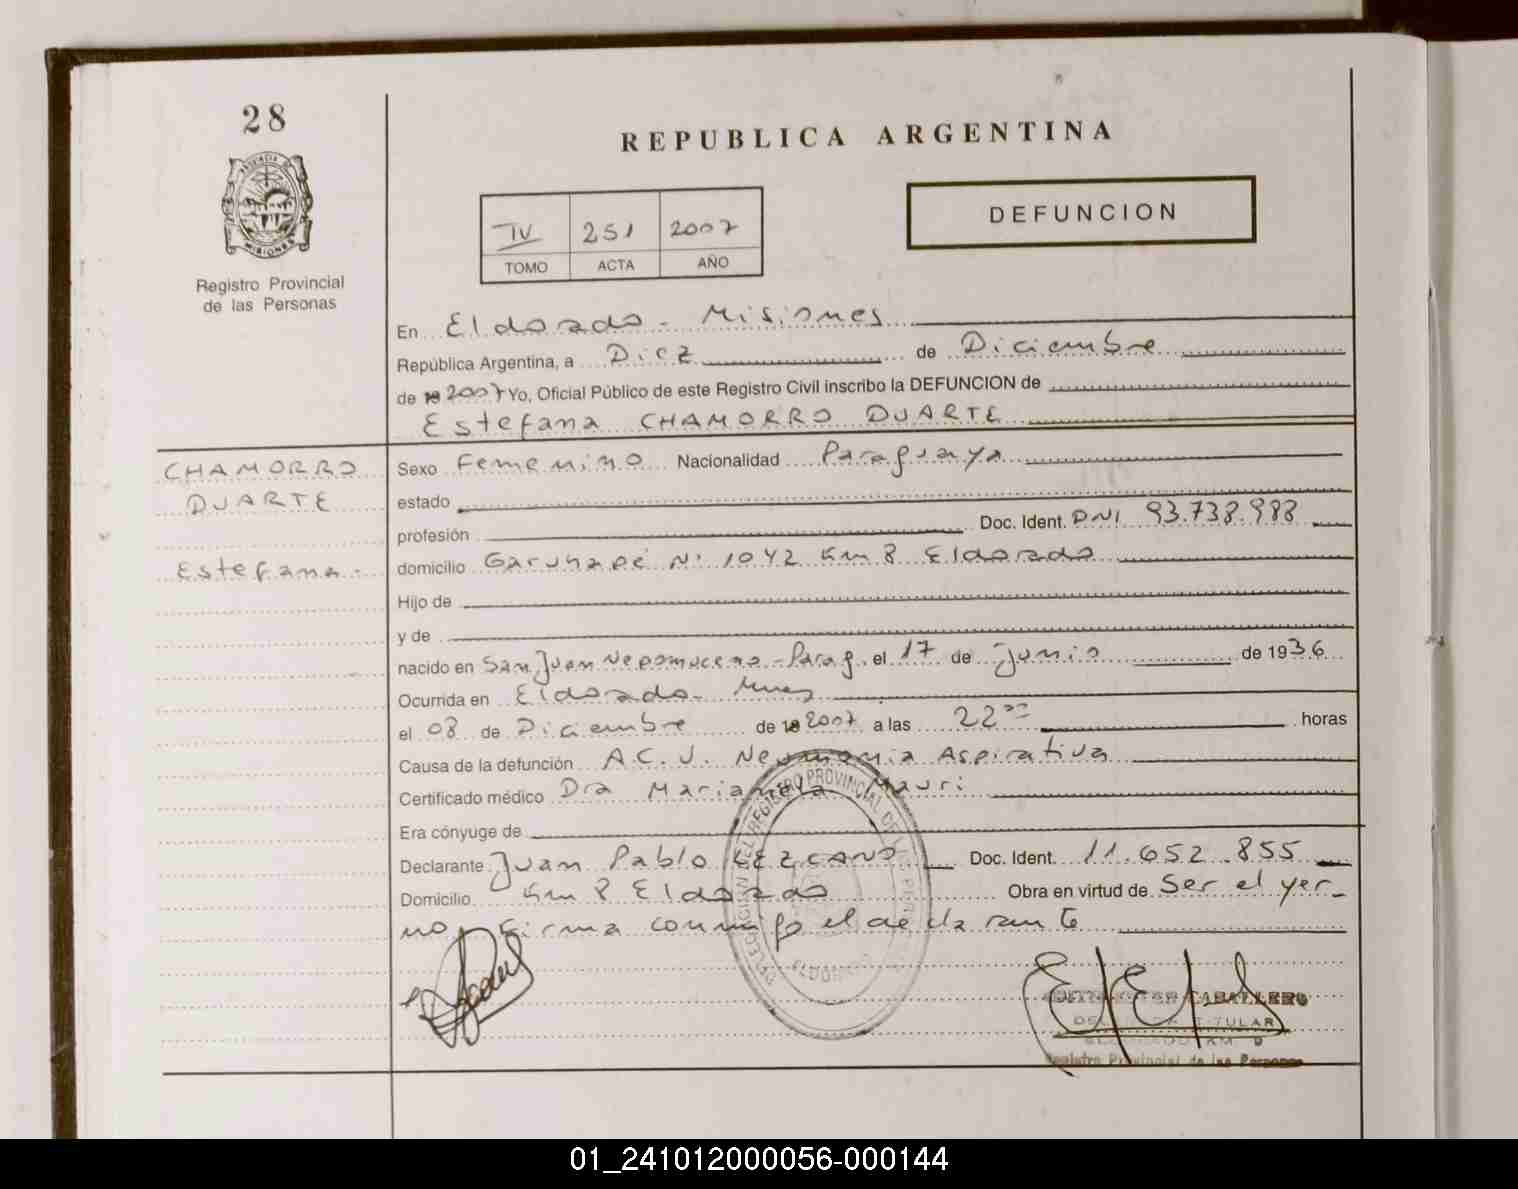 28
REPUBLICA ARGENTINA
DEFUNCION
IV 251 2007
TOMO ACTA AÑO
MISIONES
Registro Provincial
de las Personas
En Eldorado - Misiones
República Argentina, a Diez de Diciembre
de 2007 Yo, Oficial Público de este Registro Civil inscribo la DEFUNCION de
Estefana CHAMORRO DUARTE
CHAMORRO
DUARTE
Estefana.-
Sexo Femenino Nacionalidad Paraguaya
estado
profesión Doc. Ident. DNI 93.738.988
domicilio Garuhapé N° 1042 Km 8 Eldorado
Hijo de
y de
nacido en San Juan Nepomuceno - Parag. el 17 de Junio de 1936
Ocurrida en Eldorado - Mnes
el 08 de Diciembre de 2007 a las 22⁰⁰ horas
Causa de la defunción A.C.V. Neumonia Aspirativa
Certificado médico Dra Marianela Mauri
Era cónyuge de
Declarante Juan Pablo LEZCANO Doc. Ident. 11.652.855
Domicilio Km 8 Eldorado Obra en virtud de Ser el yer-
no, Firma conmigo el declarante
DELEGACION DEL REGISTRO PROVINCIAL DE LAS PERSONAS
ELDORADO
CABALLERO
TITULAR
ELDORADO KM 9
Registro Provincial de las Personas
01_241012000056-000144